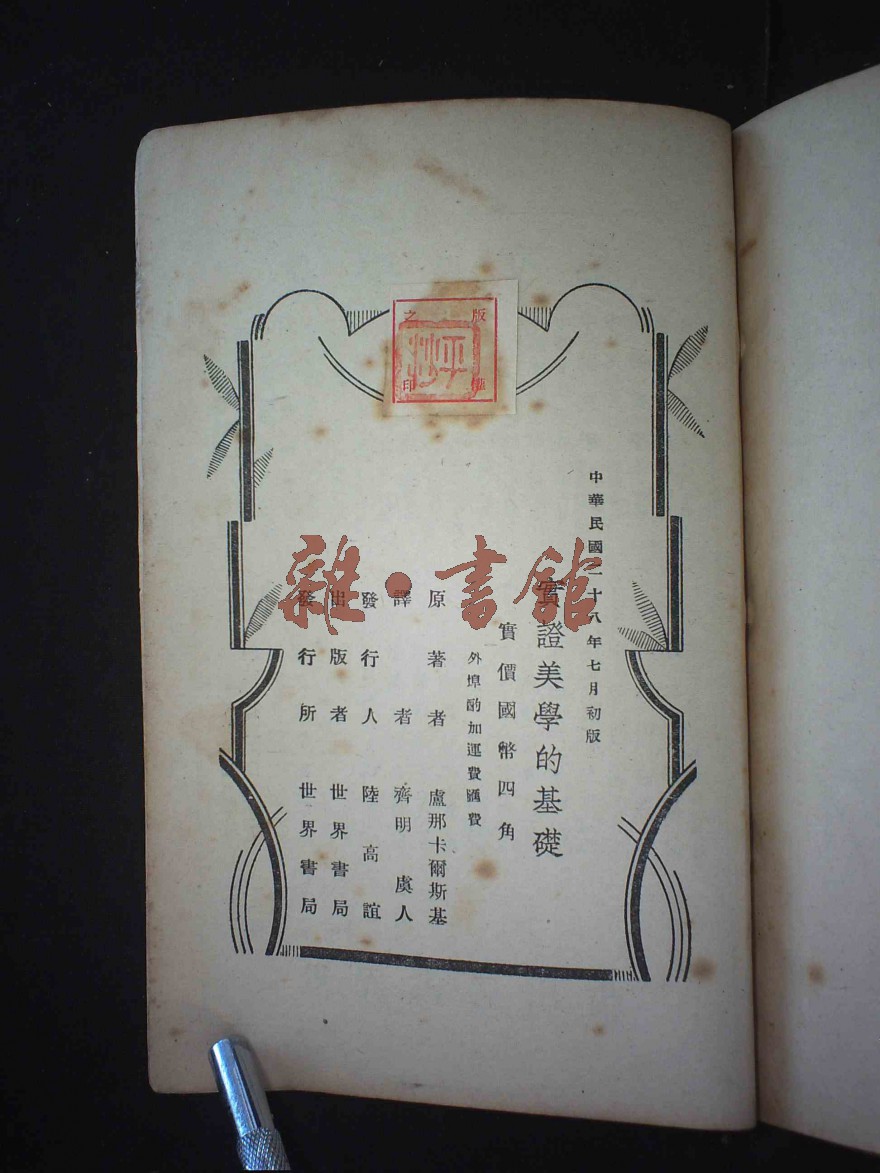 版權之印
中華民國二十八年七月初版
實證美學的基礎
實價國幣四角
外埠酌加運費匯費
原著者 盧那卡爾斯基
譯者 齊明 虞人
發行人 陸高誼
出版者 世界書局
發行所 世界書局
雜·書館